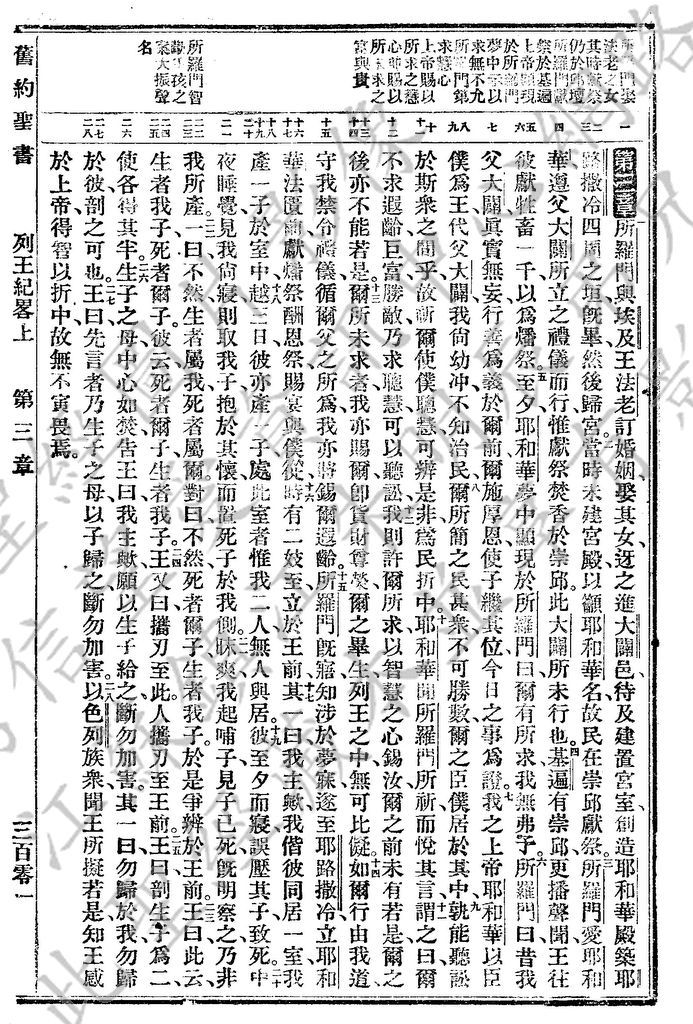 舊約聖書　列王紀畧上　第三章　三百零一
所羅門娶
法老之女
其時獻祭
仍於邱壇
所羅門獻
祭於基遍
上帝顯現
於所羅門
夢中示以
求無不允
所羅門第
求慧心
上帝賜以
所求之慧
心並賜以
所未求之
富與貴
所羅門智
斷二孩之
案大振聲
名
第三章所羅門與埃及王法老訂婚姻娶其女迓之進大闢邑待及建置宮室創造耶和華殿築耶
路撒冷四圍之垣旣畢然後歸宮當時未建宮殿以籲耶和華名故民在崇邱獻祭所羅門愛耶和
華遵父大闢所立之禮儀而行惟獻祭焚香於崇邱此大闢所未行也基遍有崇邱更播聲聞王往
彼獻牲畜一千以爲燔祭至夕耶和華夢中顯現於所羅門曰爾有所求我無弗予所羅門曰昔我
父大闢眞實無妄行善爲義於爾前爾施厚恩使子繼其位今日之事爲證我之上帝耶和華以臣
僕爲王代父大闢我尙幼冲不知治民爾所簡之民甚衆不可勝數爾之臣僕居於其中孰能聽訟
於斯衆之間乎故祈爾使僕聰慧可辨是非爲民折中耶和華聞所羅門所祈而悅其言謂之曰爾
不求遐齡巨富勝敵乃求聰慧可以聽訟我則許爾所求以智慧之心錫汝爾之前未有若是爾之
後亦不能若是爾所未求者我亦賜爾卽貨財尊榮爾之畢生列王之中無可比儗如爾行由我道
守我禁令禮儀循爾父之所爲我亦將錫爾遐齡所羅門旣寤知涉於夢寐遂至耶路撒冷立耶和
華法匱前獻燔祭酬恩祭賜宴與僕從時有二妓至立於王前其一曰我主歟我偕彼同居一室我
產一子於室中越三日彼亦產一子處此室者惟我二人無人與居彼至夕而寢誤壓其子致死中
夜睡覺見我尙寢則取我子抱於其懷而置死子於我側昧爽我起哺子見子已死旣明察之乃非
我所產一曰不然生者屬我死者屬爾對曰不然死者爾子生者我子於是爭辨於王前王曰此云
生者我子死者爾子彼云死者爾子生者我子王又曰攜刃至此人攜刃至王前王曰剖生子爲二
使各得其半生子之母中心如焚吿王曰我主歟願以生子給之斷勿加害其一曰勿歸於我勿歸
於彼剖之可也王曰先言者乃生子之母以子歸之斷勿加害以色列族衆聞王所擬若是知王感
於上帝得智以折中故無不寅畏焉